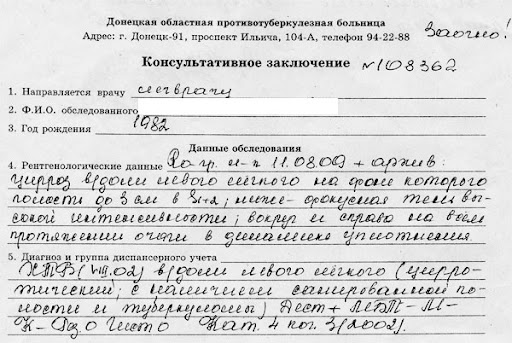 Донецкая областная противотуберкулезная больница
Адрес: г. Донецк-91, проспект Ильича, 104-А, телефон 94-22-88
Заочно!
Консультативное заключение №108362
1. Направляется врачу
2. Ф.И.О. обследованного
3. Год рождения 1982
Данные обследования
4. Рентгенологические данные На гр. и-п 11.08.09 + архив:
цирроз в/доли левого легкого на фоне которого
полости до 3 см в S1+2; ниже - фокусная тень выс-
сокой интенсивности; вокруг и справа на всем
протяжении очаги в динамике уплотнения.
5. Диагноз и группа диспансерного учета
ХТБ (VIII.02) в/доли левого легкого (цирро-
тический; с наличием санированной по-
лости и туберкуломы) Дест + МБТ - М -
К - Рез 0 Гист 0 Кат. 4 ког. 3 (2002).